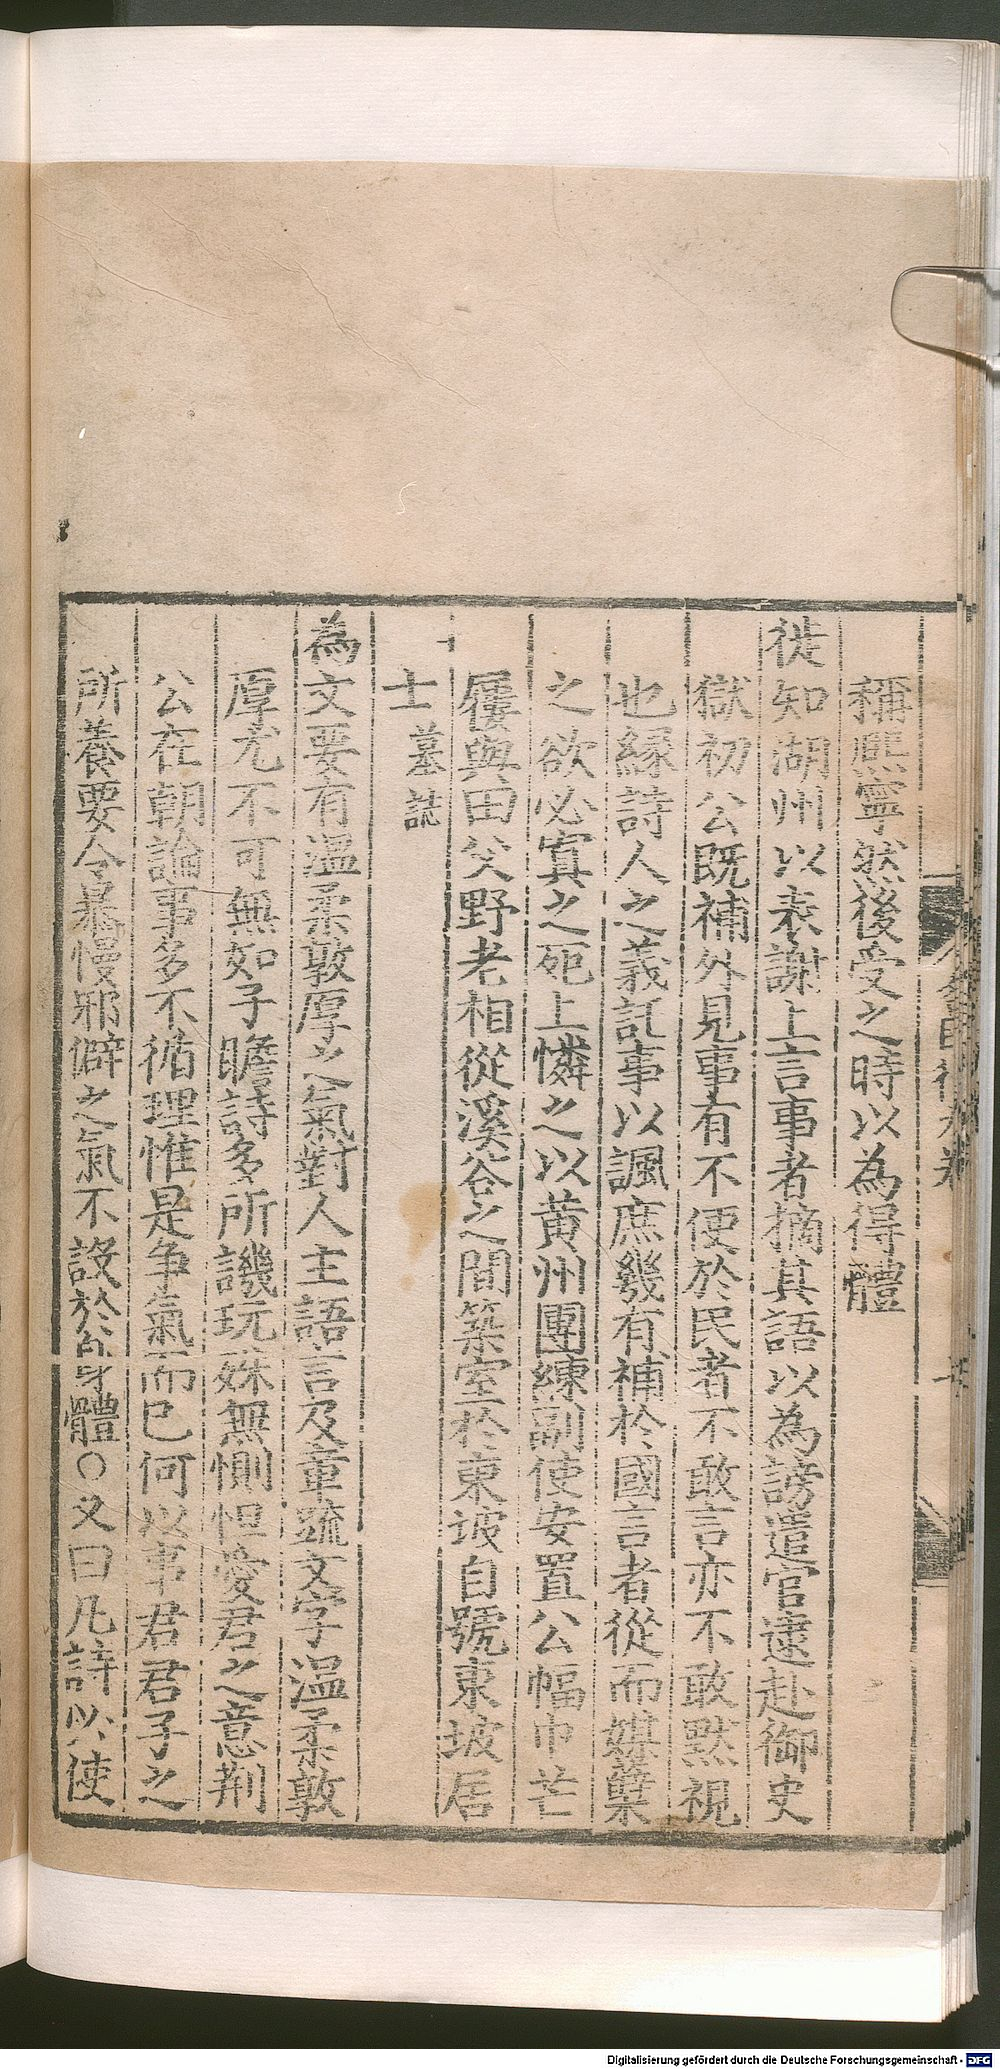 稱熈寧然後受之時以為得體
徙知湖州以表謝上言事者擿其語以為謗遣官逮赴御史
獄初公既補外見事有不便於民者不敢言亦不敢黙視
也縁詩人之義託事以諷庶幾有補於國言者從而媒糵
之欲必寘之死上憐之以黄州團練副使安置公幅巾芒
屨與田父野老相從溪谷之間築室於東坡自號東坡居
士墓誌
為文要有温柔敦厚之氣對人主語言及章疏文字温柔敦
厚尤不可無如子瞻詩多所譏玩殊無惻怛愛君之意荆
公在朝論事多不循理惟是争氣而已何以事君君子之
所養要令暴慢邪僻之氣不設於身體○又曰凡詩以使
Digitalisierung gefördert durch die Deutsche Forschungsgemeinschaft - DFG